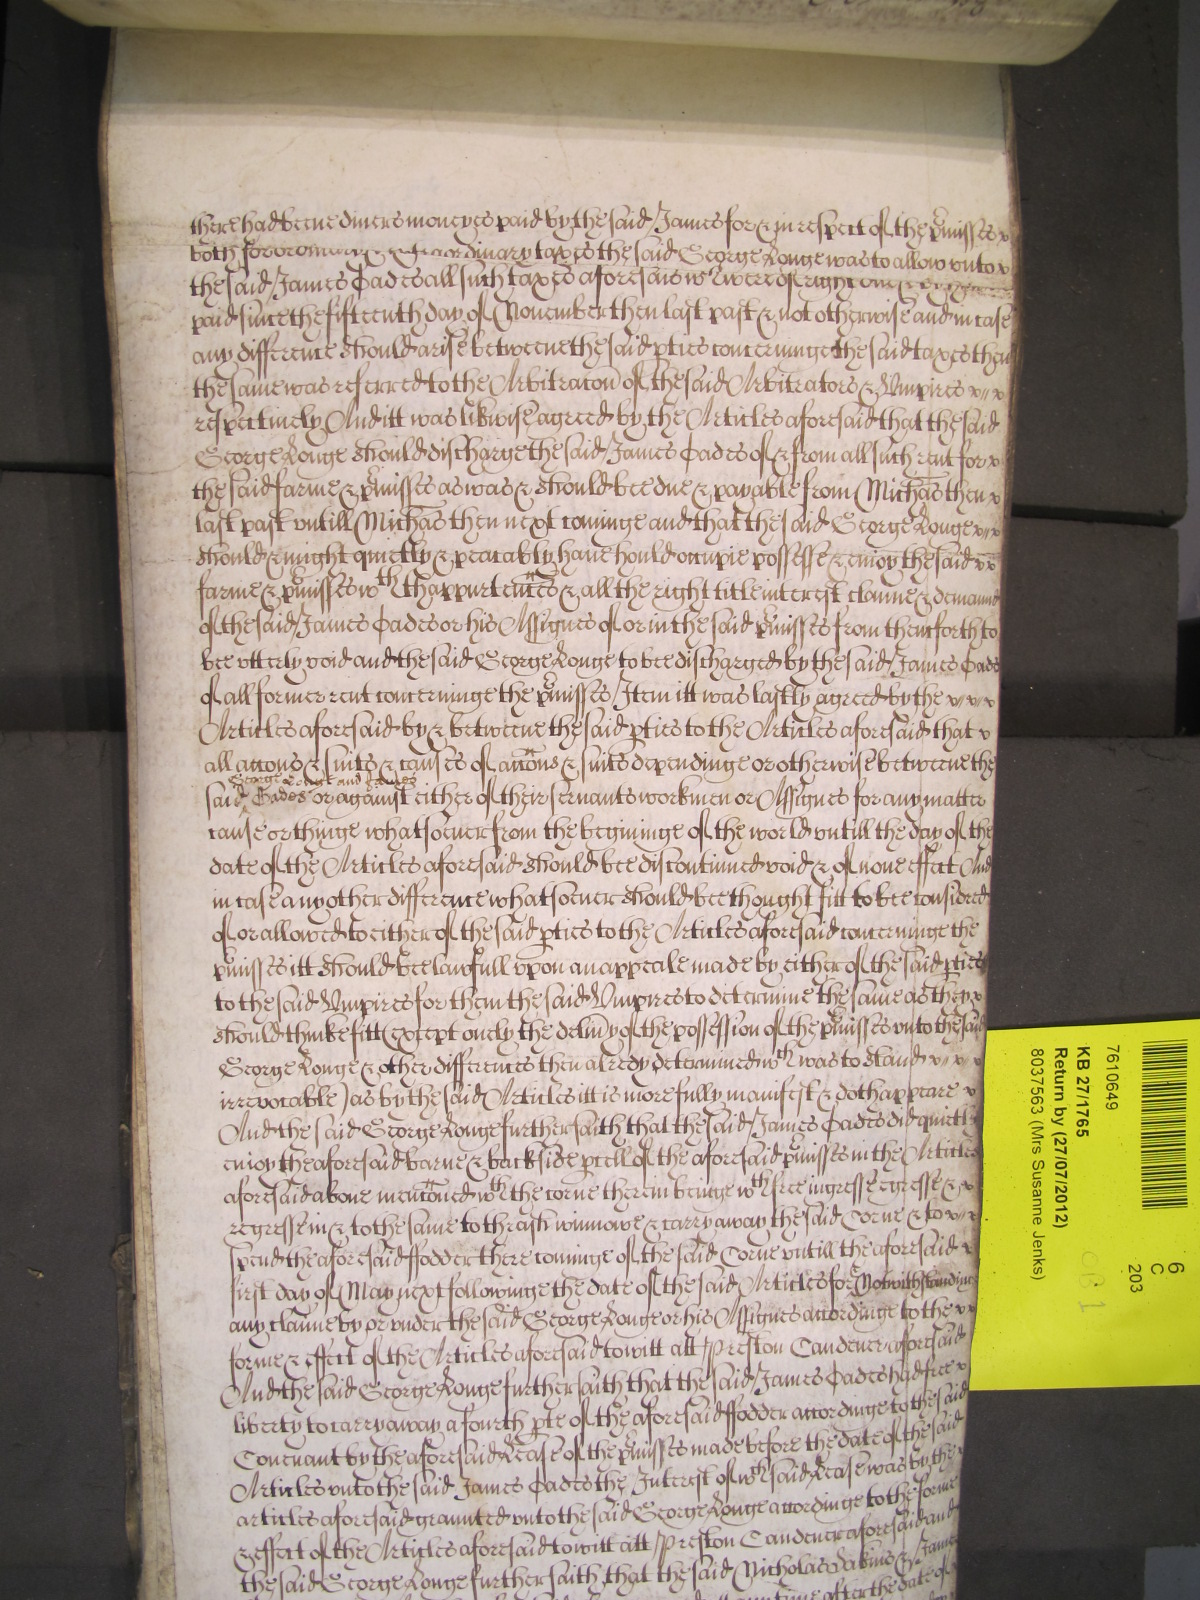 there had beene divers moneyes paid by the said James for & in respect of the p̱misses
both for ordinary & extraordinary taxes the said George Longe was to allow unto
the said James Eades all such taxes aforesaid wch were of right
paid since the fifteenth day of November then last past & not otherwise and in case
any difference should arise betweene the said p̱ties concerninge the said taxes then
the same was referred to the Arbitracon̄ of the said Arbitrators & Umpires
respectively And itt was likwise agreed by the Articles aforesaid that the said
George Longe should discharge the said James Eades of & from all such rent for
the said farme & p̱misses as was & should bee due & payable from Michās then
last past untill Michās then next cominge and that the said George Longe
should & might quietly & peaceably have hould occupie possesse & enioy the said
farme & p̱misses wth thappurtenn̄ces & all the right title interest clayme & demaund
of the said James Eades or his Assignes of or in the said p̱misses from thenceforth to
bee utterly void and the said George Longe to bee discharged by the said James Eades
of all former rent concerninge the p̱misses Item itt was lastly agreed by the
Articles aforesaid by & betweene the said p̱ties to the Articles aforesaid that
all accons & suits & causes of accons & suits dependinge or otherwise betweene the
George Longe and James
said Eades or against either of their servants workmen or Assignes for any matter
cause or thinge whatsoever from the begininge of the world untill the day of the
date of the Articles aforesaid should bee discontinued void & of none effect And
in case any other difference whatsoever should bee thought fitt to bee considered
of or allowed to either of the said p̱ties to the Articles aforesaid concerninge the
p̱misses itt should bee lawfull upon an appeale made by either of the said p̱ties
to the said Umpires for them the said Umpires to determine the same as they
should thinke fitt (except onely the delivy of the possession of the p̱misses unto the said
George Longe & other differences then alredy determined wch was to stand
irrevocable) as by the said Articles itt is more fully manifest & doth appeare
And the said George Longe further saith that the said James Eades did quietly
enioy the aforesaid barne & backside p̱cell of the aforesaid p̱misses in the Articles
aforesaid above mencōned wth the corne therein beinge wth free ingresse egresse &
regresse in & to the same to thrash winnowe & carry away the said Corne & to
spend the aforesaid ffodder there cominge of the said Corne untill the aforesaid
first day of May next followinge the date of the said Articles Notwithstandinge
any clayme by or under the said George Longe or his Assignes accordinge to the
forme & effect of the Articles aforesaid to witt att Preston Candever aforesaid
And the said George Longe further saith that the said James Eades had free
liberty to carry away a fourth p̱te of the aforesaid ffodder accordinge to the said
Covenant by the aforesaid Lease of the p̱misses made before the date of the said
Articles unto the said James Eades the Interest of wch said Lease was by the
articles aforesaid graunted unto the said George Longe accordinge to the forme
& effect of the Articles aforesaid to witt att Preston Candever aforesaid and
the said George Longe further saith that the said Nicholas & James
after the date of
7610649
KB 27/1765
Return by (27/07/2012)
8037563 (Mrs Susanne Jenks)
6
C
203